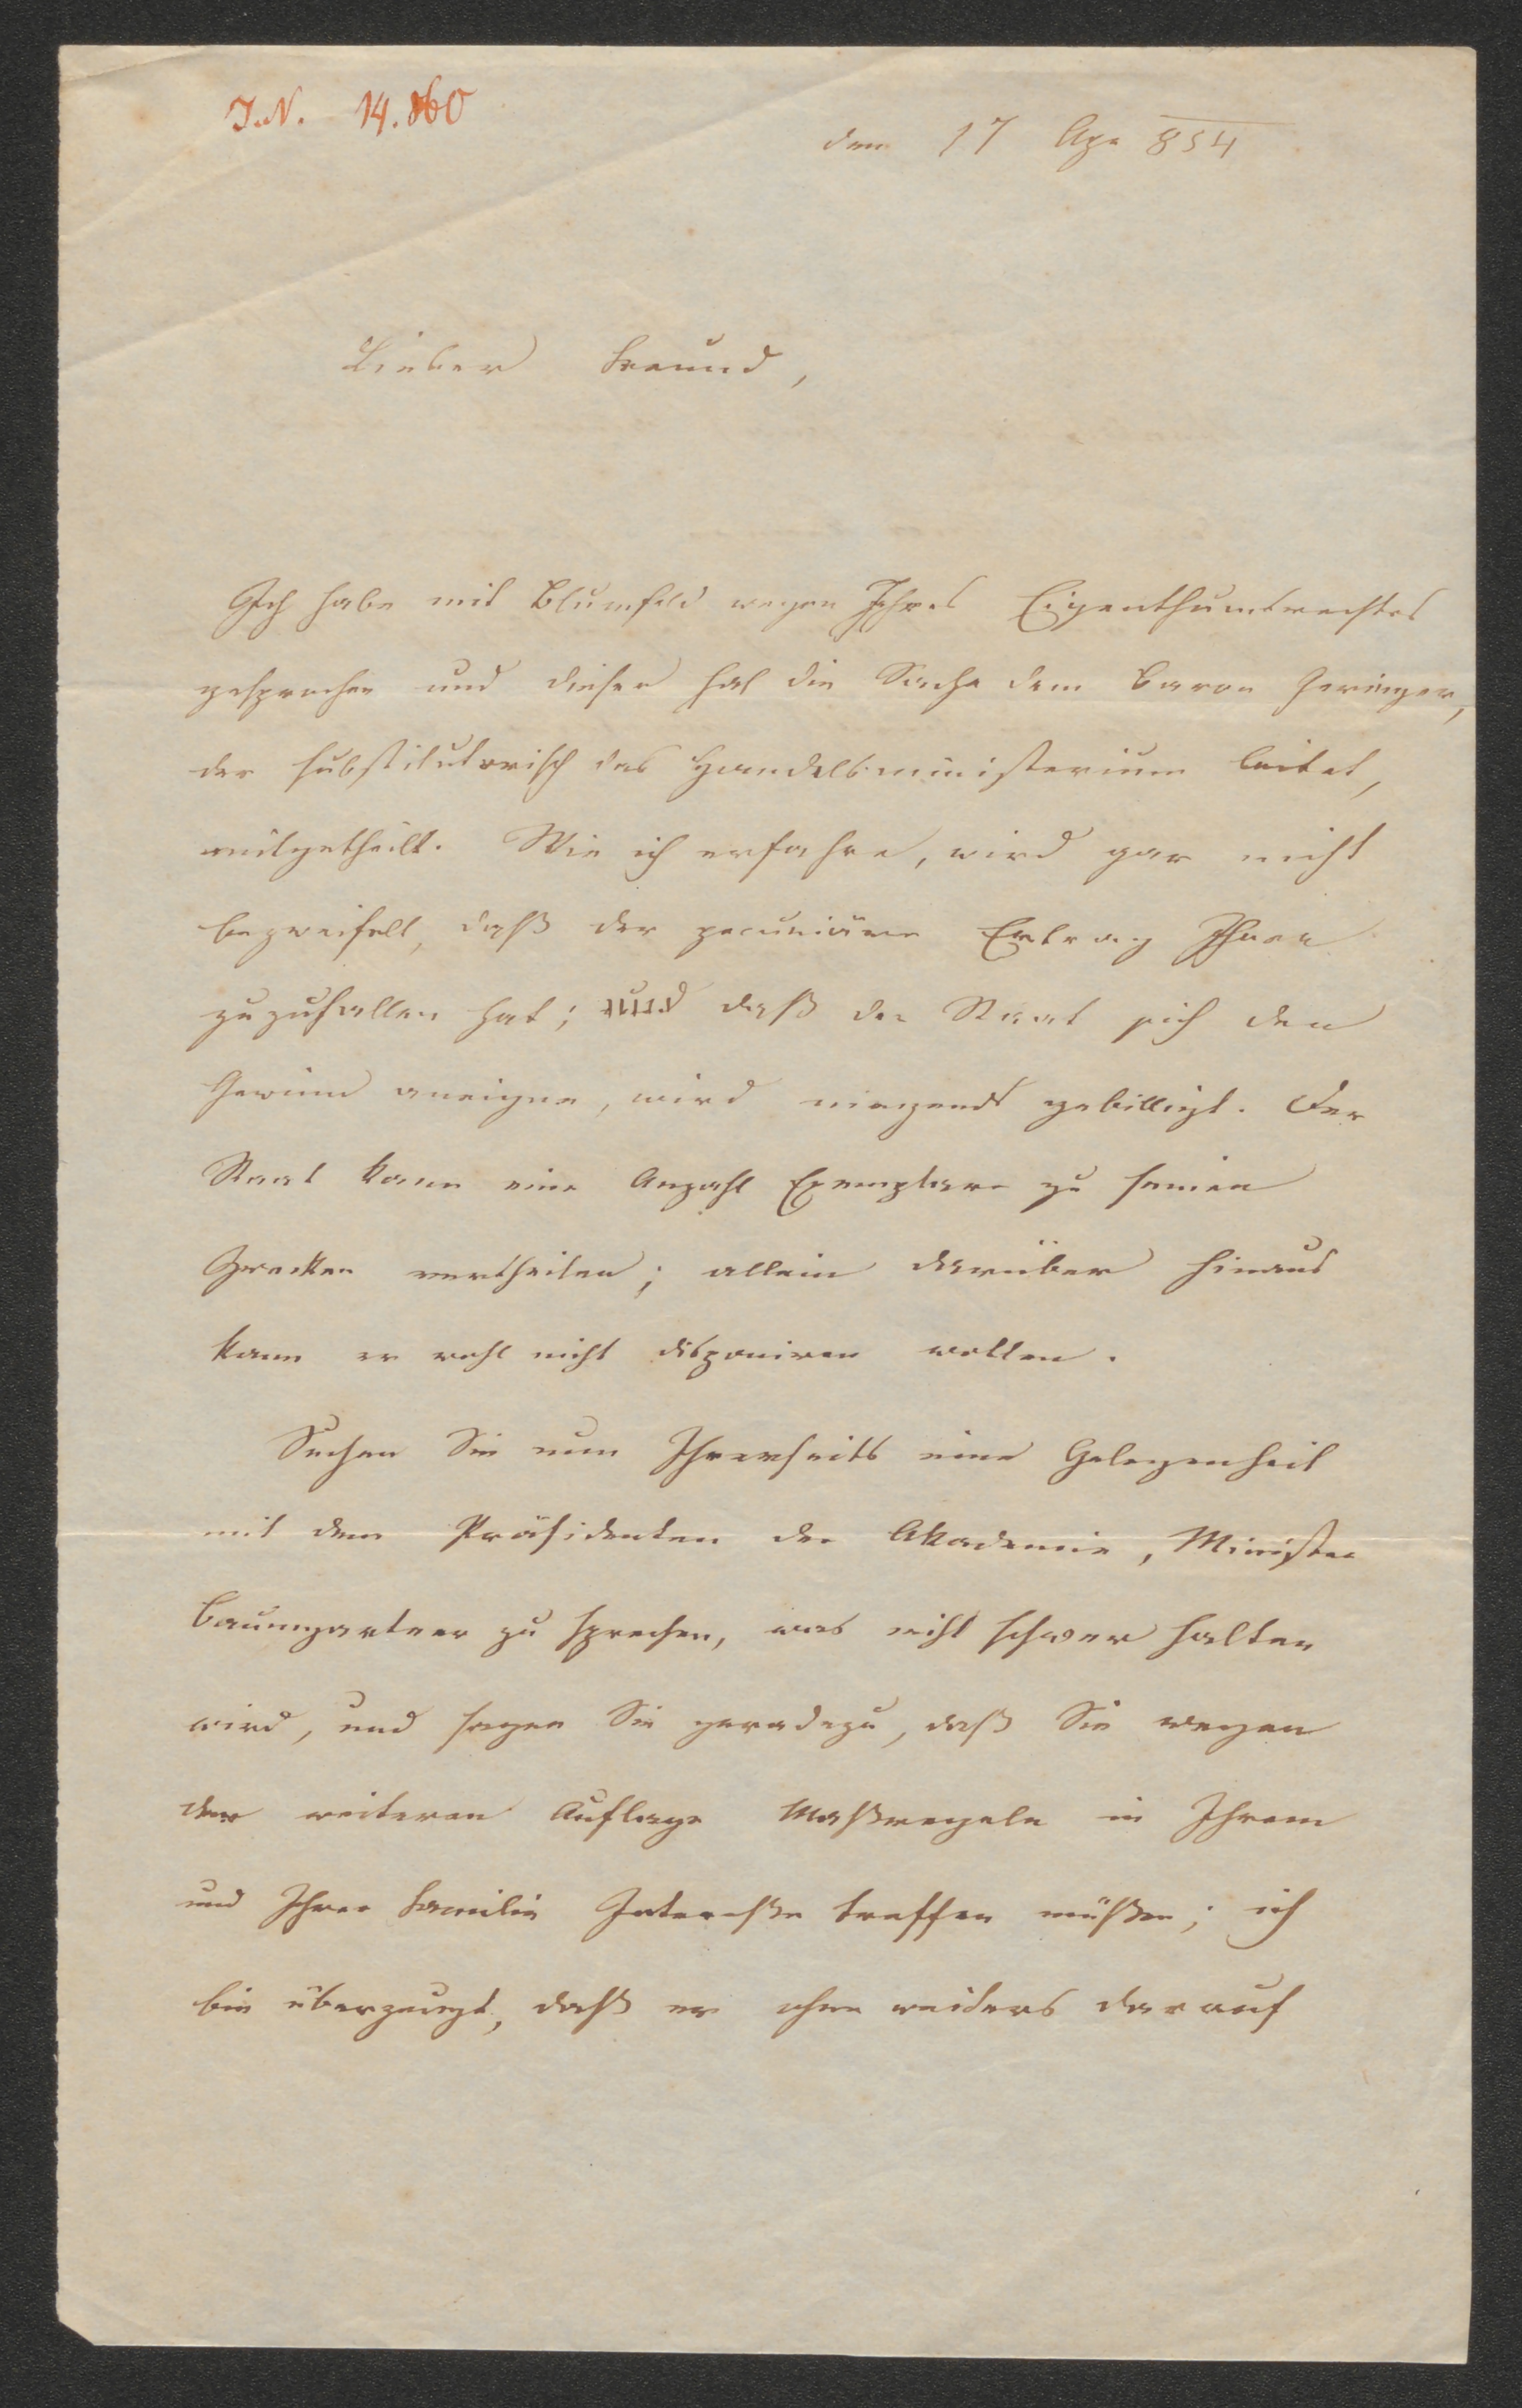 J.N. 14.860
den 17 Apr 854
Lieber Freund,
Ich habe mit Blumfeld wegen Ihres Eigenthumsrechtes
gesprochen und dieser hat die Sache dem Baron Geringer,
der substitutorisch das Handelsministerium leitet,
mitgetheilt. Wie ich erfahre, wird gar nicht
bezweifelt, daß der pecuniäre Ertrag Ihnen
zuzufallen hat; und daß der Staat sich den
Gewinn aneigne, wird nirgends gebilligt. Der
Staat kann eine Anzahl Exemplare zu seinen
Zwecken vertheilen; allein darüber hinaus
kann er wohl nicht disponiren wollen.
Suchen Sie nun Ihrerseits eine Gelegenheit
mit dem Präsidenten der Akademie, Minister
Baumgartner zu sprechen, was nicht schwer halten
wird, und sagen Sie geradezu, daß Sie wegen
der weiteren Auflage Maßregeln in Ihrem
und Ihrer Familie Interesse treffen müßen; ich
bin überzeugt, daß er ohne weiters darauf